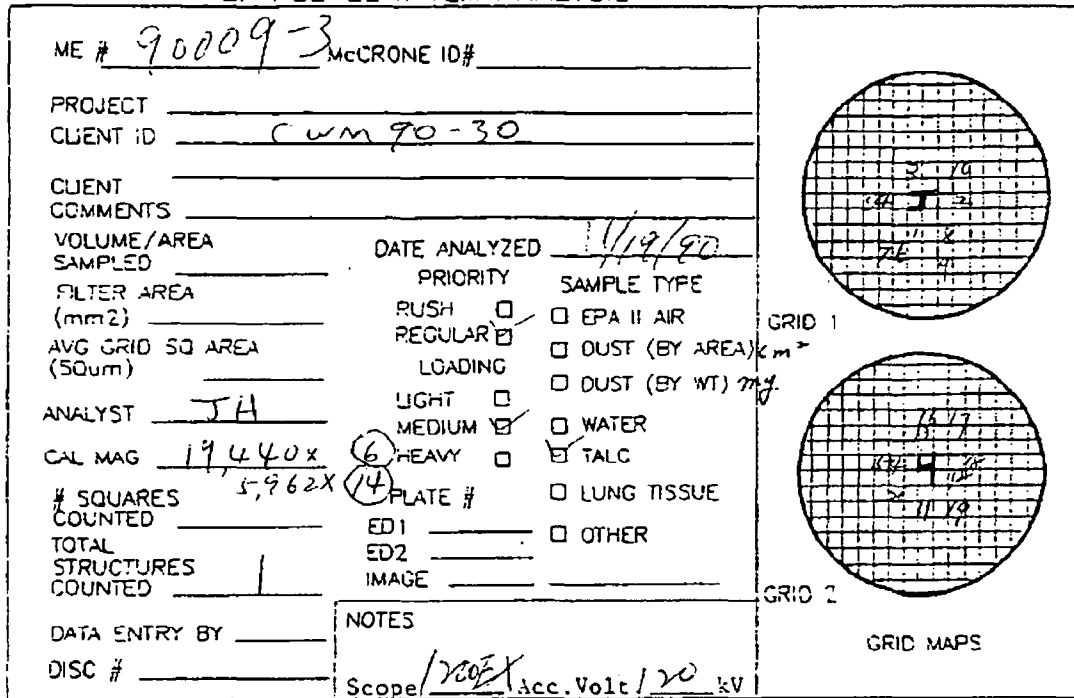 ME # 90009-3 McCRONE ID#
PROJECT
CLIENT ID CWM 90-30
CLIENT
COMMENTS
VOLUME/AREA
SAMPLED
FILTER AREA
(mm2)
AVG GRID SQ AREA
(SQum)
ANALYST JH
CAL MAG 19,440x (6)
5,962X (14)
# SQUARES
COUNTED
TOTAL
STRUCTURES
COUNTED 1
DATA ENTRY BY
DISC #
DATE ANALYZED /19/90
PRIORITY
RUSH
REGULAR
LOADING
LIGHT
MEDIUM
HEAVY
PLATE #
ED1
ED2
IMAGE
SAMPLE TYPE
EPA II AIR
DUST (BY AREA) cm²
DUST (BY WT) mg.
WATER
TALC
LUNG TISSUE
OTHER
NOTES
Scope 1200EX Acc.Volt 120 kV
GRID 1
GRID 2
GRID MAPS